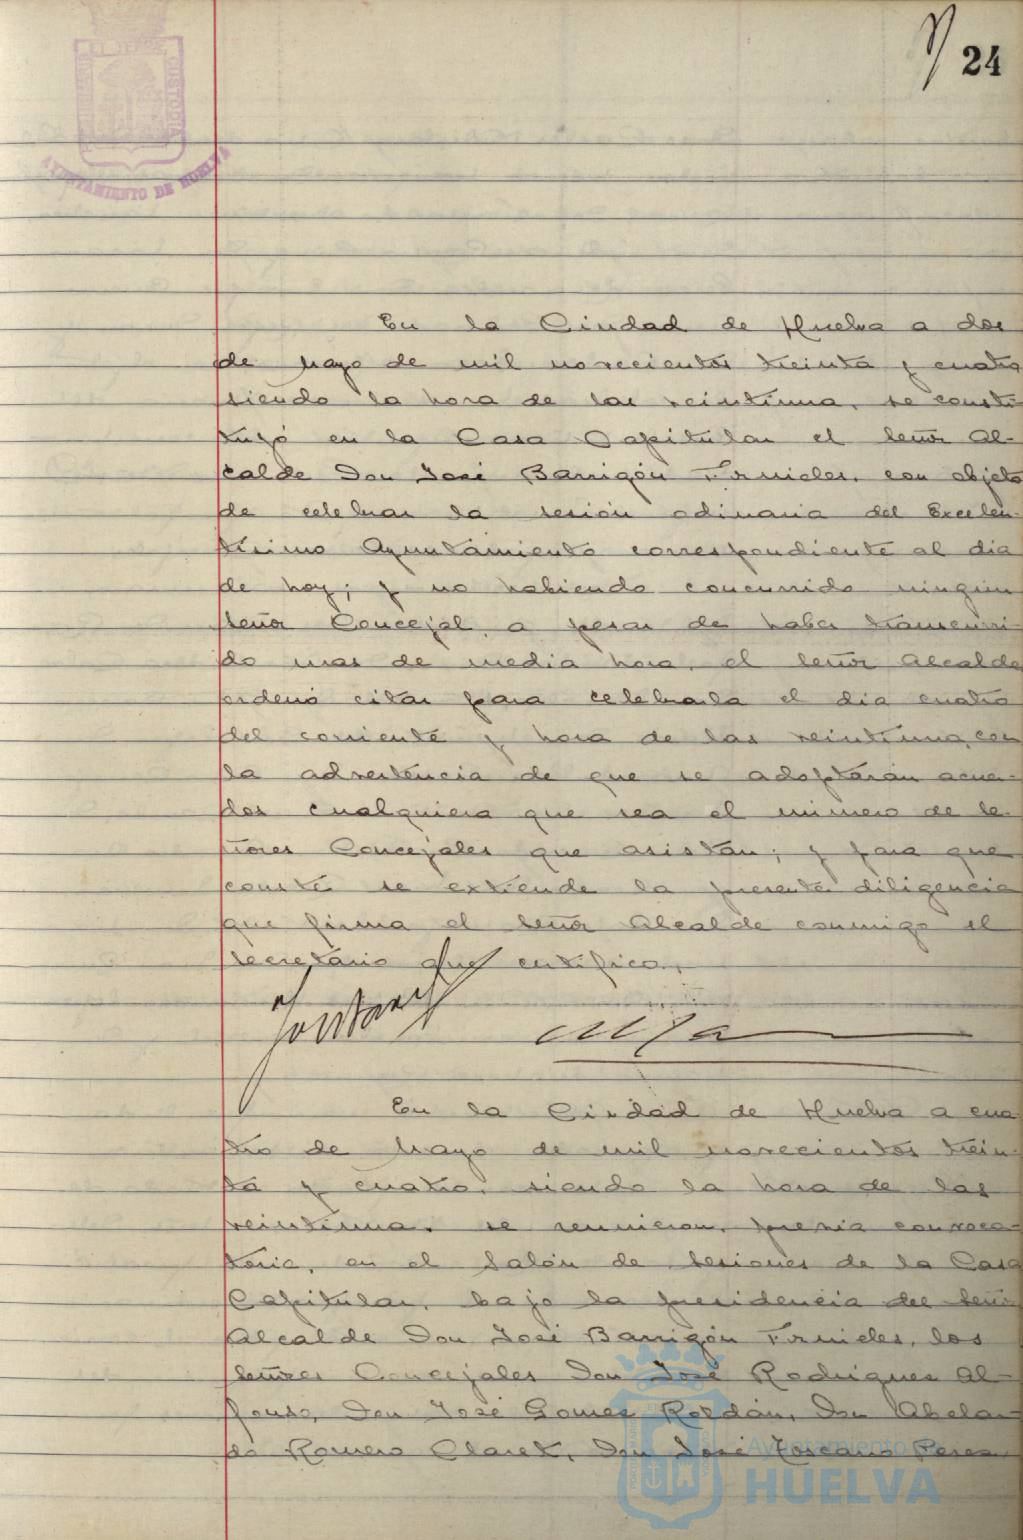 24
EL TERRE
CUSTODIA
AYUNTAMIENTO DE HUELVA
En la Ciudad de Huelva a dos
de Mayo de mil novecientos treinta y cuatro
siendo la hora de las veintiuna, se consti
tuyó en la Casa Capitular el Señor Al-
calde Don José Barrigón Fornieles, con objeto
de celebrar la sesión odinaria del Excelen-
tísimo Ayuntamiento correspondiente al día
de hoy; y no habiendo concurrido ningún
Señor Concejal, a pesar de haber transcurri-
do mas de media hora, el Señor Alcalde
ordenó citar para celebrarla el día cuatro
del corriente y hora de las veintiuna, con
la advertencia de que se adoptarán acuer-
dos cualquiera que sea el número de Se-
ñores Concejales que asistan; y para que
conste se extiende la presente diligencia
que firma el Señor Alcalde conmigo el
Secretario que certifico.
En la Ciudad de Huelva a cua
tro de Mayo de mil novecientos trein-
ta y cuatro, siendo la hora de las
veintiuna, se reunieron, previa convoca-
toria, en el Salón de Sesiones de la Casa
Capitular, bajo la presidencia del Señor
Alcalde Don José Barrigón Fornieles, los
Señores Concejales Don José Rodriguez Al-
fonso, Don José Gomez Roldán, Don Abelar
do Romero Claret, Don José Toscano Perez
Ayuntamiento
HUELVA